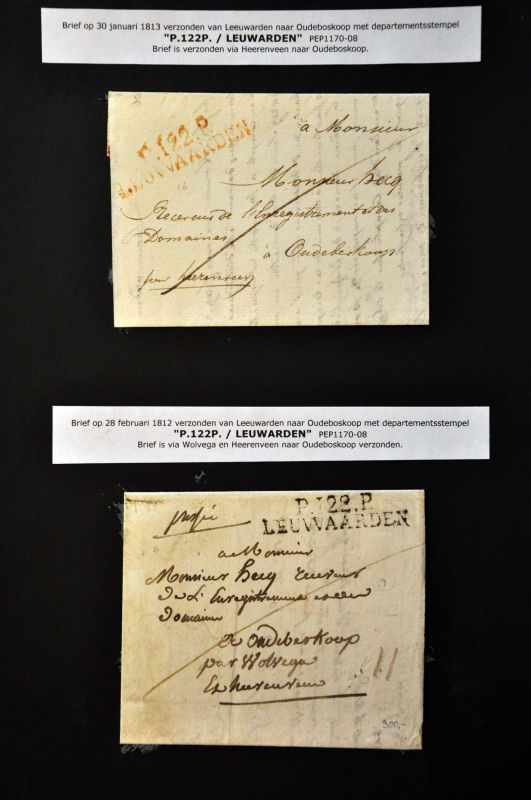 Brief op 30 januari 1813 verzonden van Leeuwarden naar Oudeboskoop met departementsstempel
"P.122P. / LEUWARDEN" PEP1170-08
Brief is verzonden via Heerenveen naar Oudeboskoop.
P.122.P.
LEUWAARDEN
à Monsieur
Monsieur hecq
Receveur de l'Enregistrement et des
Domaines
à Oudeberkoop
par heerenveen
Brief op 28 februari 1812 verzonden van Leeuwarden naar Oudeboskoop met departementsstempel
"P.122P. / LEUWARDEN" PEP1170-08
Brief is via Wolvega en Heerenveen naar Oudeboskoop verzonden.
P.122.P.
LEUWAARDEN
a Monsieur
Monsieur hecq receveur
de L'Enregistrement et des
Domaines
a oudeberkoop
par Wolvega
Et heerenveen
11
300,-